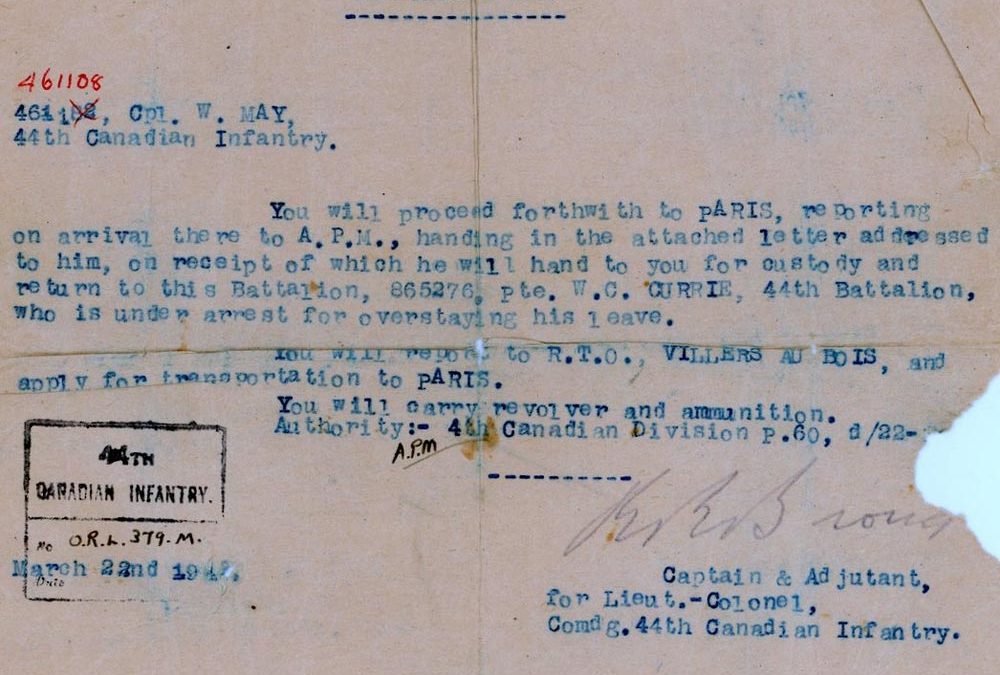 461108
461, Cpl. W. MAY,
44th Canadian Infantry.
You will proceed forthwith to PARIS, reporting
on arrival there to A.P.M., handing in the attached letter addressed
to him, on receipt of which he will hand to you for custody and
return to this Battalion, 865276, pte. W.C. CURRIE, 44th Battalion,
who is under arrest for overstaying his leave.
You will report to R.T.O., VILLERS AU BOIS, and
apply for transportation to PARIS.
You will carry revolver and ammunition.
Authority:- 4th Canadian Division p.60, d/22-
A.P.M
44TH
CARADIAN INFANTRY.
No O.R.L. 379-M.
March 22nd 191
Date
Captain & Adjutant,
for Lieut.-Colonel,
Comdg. 44th Canadian Infantry.